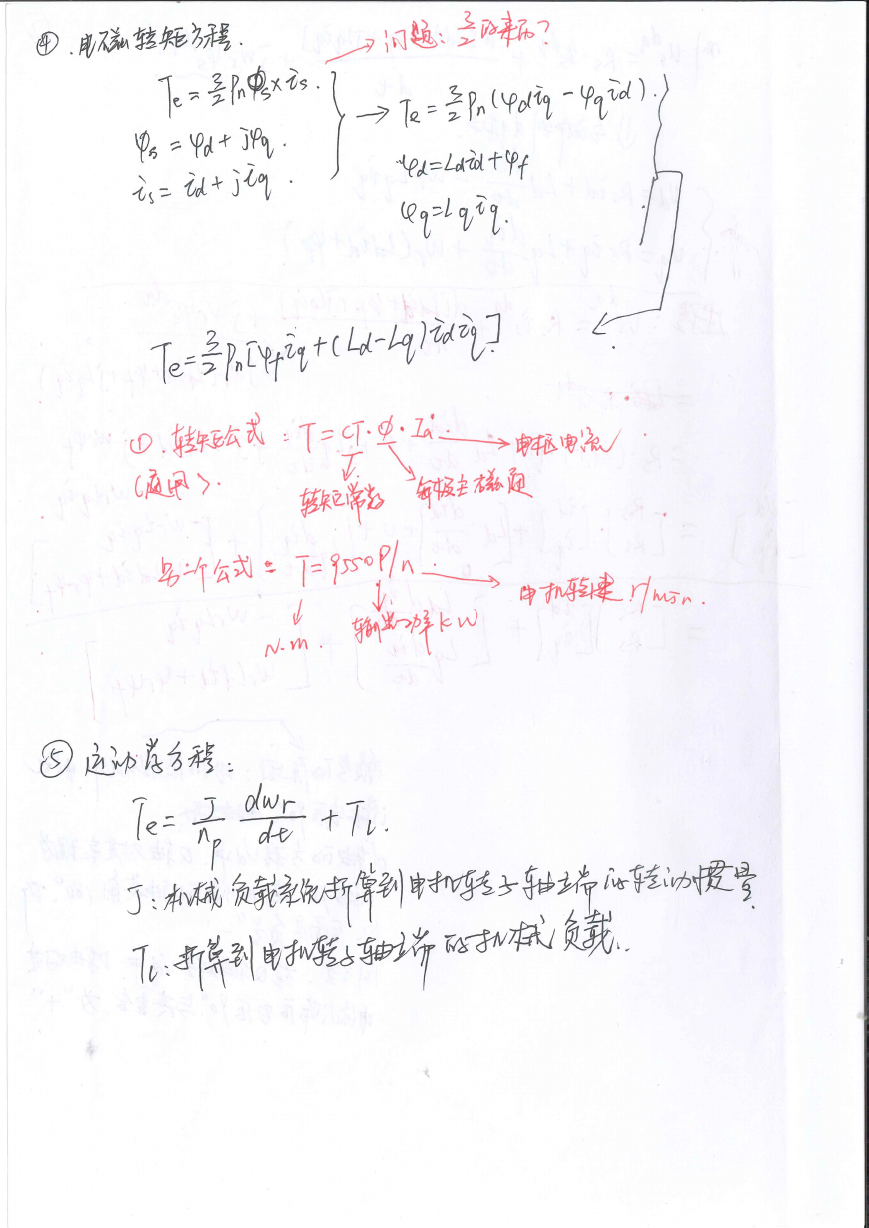 ④.电磁转矩方程.
→问题:3/2的来历?
Te=3/2 Pn φs×is.
φs=φd+jφq.
is=id+jiq.
→Te=3/2 Pn(φdiq-φqid).
φd=Ldid+φf
φq=Lqiq.
Te=3/2 Pn[φfiq+(Ld-Lq)idiq].
①.转矩公式:T=CT·φ·Ia→电枢电流
(通用).
转矩常数 每极主磁通
另一个公式:T=9550P/n→电机转速r/min.
N.m. 输出功率KW
⑤运动学方程:
Te=J/np dwr/dt+TL.
J:机械负载系统折算到电机转子轴上端的转动惯量.
TL:折算到电机转子轴上端的机械负载.